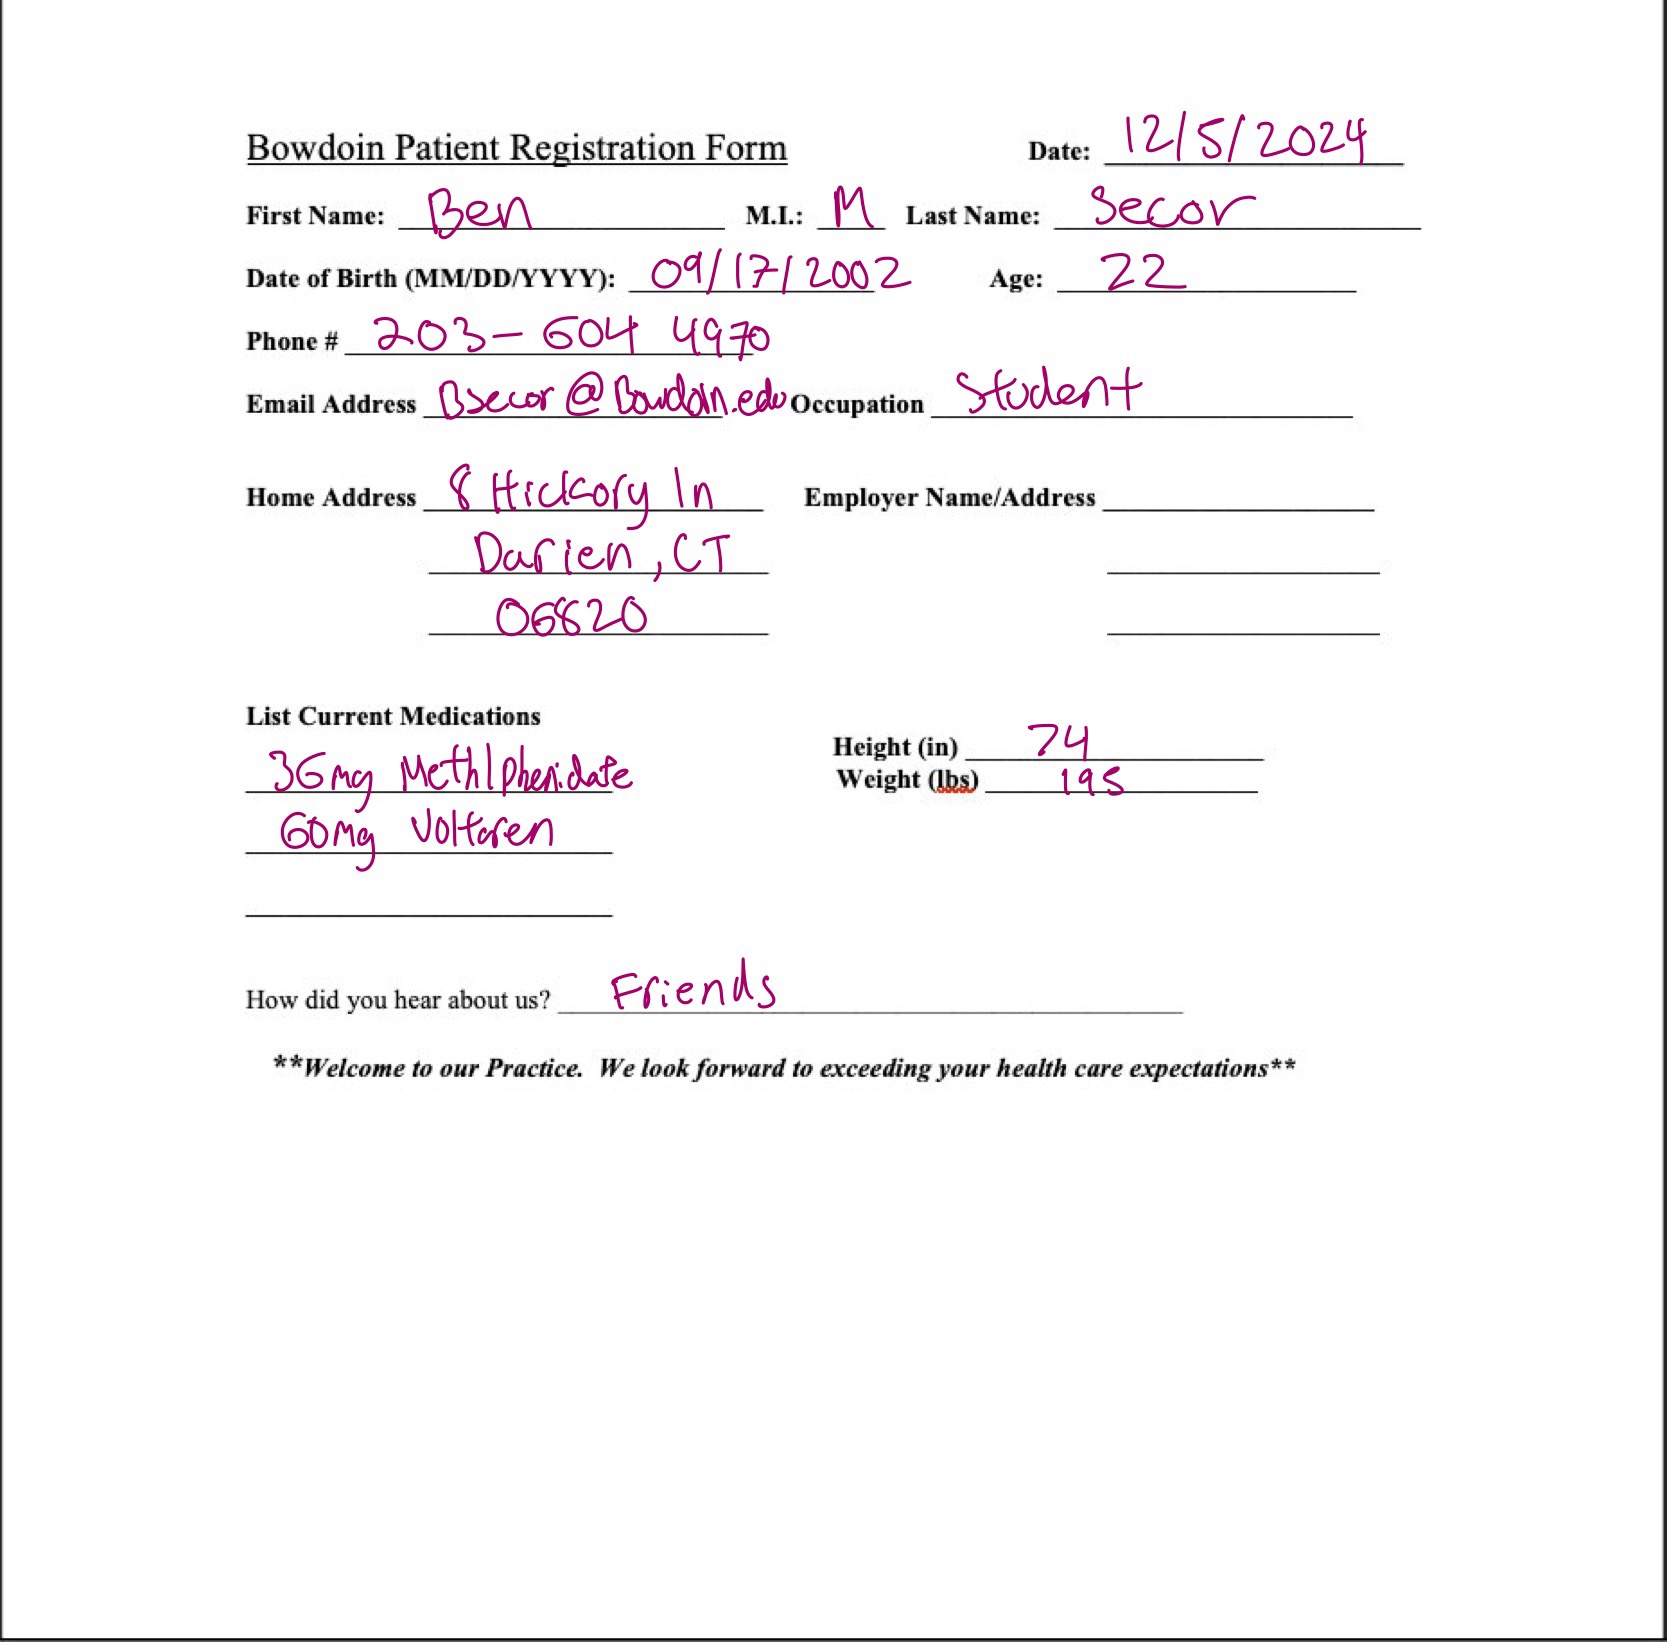 Bowdoin Patient Registration Form Date: 12/5/2024
First Name: Ben M.I.: M Last Name: Secor
Date of Birth (MM/DD/YYYY): 09/17/2002 Age: 22
Phone # 203-604 4970
Email Address Bsecor@Bowdoin.edu Occupation Student
Home Address 8 Hickory ln Employer Name/Address
Darien, CT
06820
List Current Medications
Height (in) 74
36mg Methlphenidate Weight (lbs) 195
60mg Voltaren
How did you hear about us? Friends
**Welcome to our Practice. We look forward to exceeding your health care expectations**